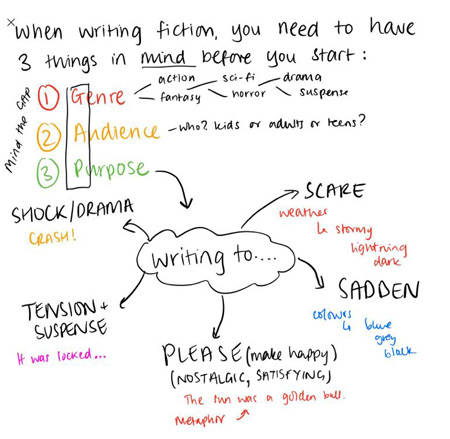 When writing fiction, you need to have
3 things in mind before you start:
Mind the GAP
action sci-fi drama
1 Genre
fantasy horror suspense
2 Audience - who? kids or adults or teens?
3 Purpose
SHOCK/DRAMA
CRASH!
SCARE
weather
stormy
lightning
dark
writing to....
TENSION +
SUSPENSE
It was locked...
SADDEN
colours
blue
grey
black
PLEASE (make happy)
(NOSTALGIC, SATISFYING,)
The sun was a golden ball.
metaphor